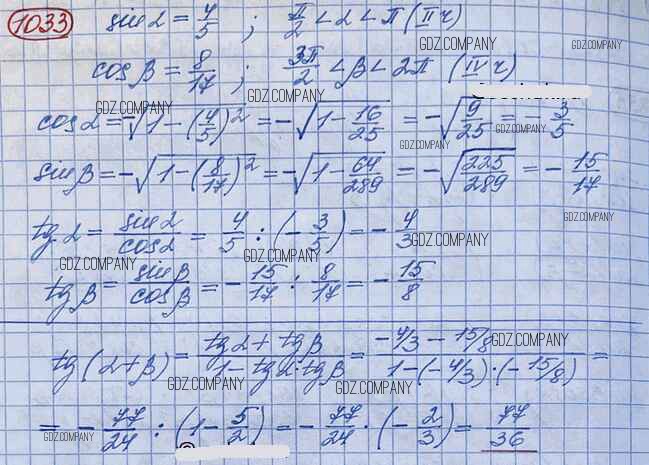 1033 sin α = 4/5 ; π/2 < α < π (II ч)
GDZ.COMPANY GDZ.COMPANY
cos β = 8/17 ; 3π/2 < β < 2π (IV ч)
GDZ.COMPANY GDZ.COMPANY
cos α = -√(1 - (4/5)²) = -√(1 - 16/25) = -√(9/25) = -3/5
GDZ.COMPANY GDZ.COMPANY
sin β = -√(1 - (8/17)²) = -√(1 - 64/289) = -√(225/289) = -15/17
GDZ.COMPANY
tg α = sin α / cos α = 4/5 : (-3/5) = -4/3
GDZ.COMPANY GDZ.COMPANY GDZ.COMPANY
tg β = sin β / cos β = -15/17 : 8/17 = -15/8
tg(α+β) = (tg α + tg β) / (1 - tg α · tg β) = (-4/3 - 15/8) / (1 - (-4/3)·(-15/8)) =
GDZ.COMPANY GDZ.COMPANY GDZ.COMPANY
= -77/24 : (1 - 5/2) = -77/24 · (-2/3) = 77/36
GDZ.COMPANY